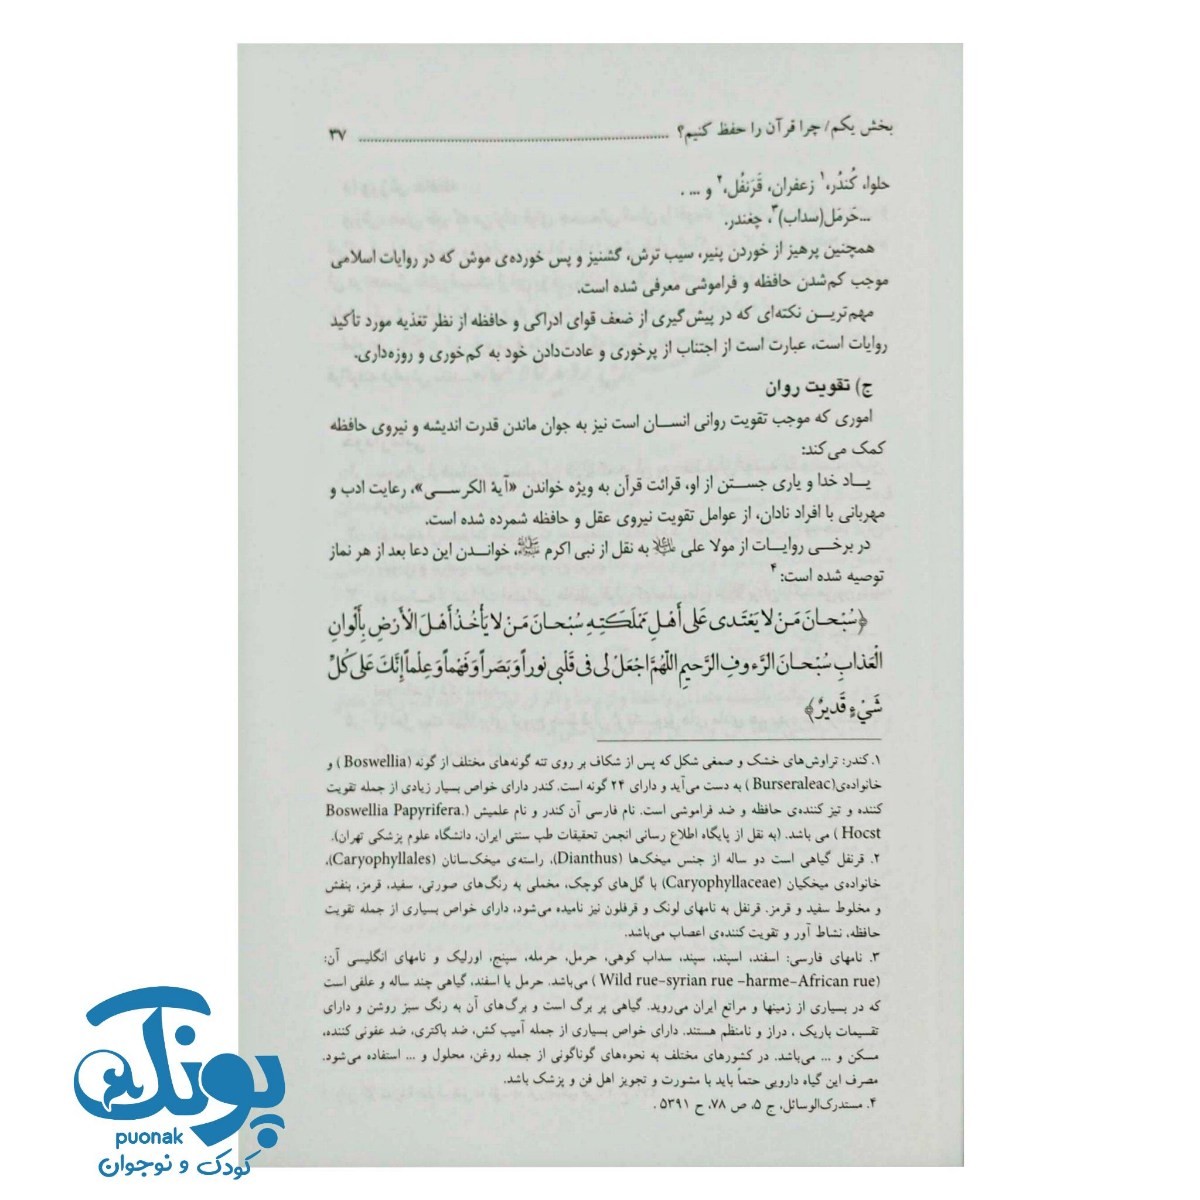 بخش یکم/چرا قرآن را حفظ کنیم؟ ........................................................ ۳۷
حلوا، کُندُر،۱ زعفران، قَرَنفُل،۲ و ... .
...حَرمَل(سداب)۳، چغندر.
همچنین پرهیز از خوردن پنیر، سیب ترش، گشنیز و پس خورده‌ی موش که در روایات اسلامی
موجب کم‌شدن حافظه و فراموشی معرفی شده است.
مهم‌ترین نکته‌ای که در پیش‌گیری از ضعف قوای ادراکی و حافظه از نظر تغذیه مورد تأکید
روایات است، عبارت است از اجتناب از پرخوری و عادت‌دادن خود به کم‌خوری و روزه‌داری.
ج) تقویت روان
اموری که موجب تقویت روانی انسان است نیز به جوان ماندن قدرت اندیشه و نیروی حافظه
کمک می‌کند:
یاد خدا و یاری جستن از او، قرائت قرآن به ویژه خواندن «آیة الکرسی»، رعایت ادب و
مهربانی با افراد نادان، از عوامل تقویت نیروی عقل و حافظه شمرده شده است.
در برخی روایات از مولا علی علیه‌السلام به نقل از نبی اکرم ﷺ، خواندن این دعا بعد از هر نماز
توصیه شده است:۴
﴿سُبْحانَ مَنْ لا یَعْتَدی عَلی أَهْلِ مَمْلَکَتِهِ سُبْحانَ مَنْ لا یَأْخُذُ أَهْلَ الْأَرْضِ بِأَلْوانِ
الْعَذابِ سُبْحانَ الرَّءوفِ الرَّحیمِ اللّهُمَّ اجْعَلْ لی فی قَلْبی نوراً وَ بَصَراً وَ فَهْماً وَ عِلْماً إِنَّكَ عَلی کُلِّ
شَیْءٍ قَدیرٌ﴾
۱. کندر: تراوش‌های خشک و صمغی شکل که پس از شکاف بر روی تنه گونه‌های مختلف از گونه (Boswellia) و
خانواده‌ی(Burseraleac) به دست می‌آید و دارای ۲۴ گونه است. کندر دارای خواص بسیار زیادی از جمله تقویت
کننده و تیز کننده‌ی حافظه و ضد فراموشی است. نام فارسی آن کندر و نام علمیش (.Boswellia Papyrifera
Hocst) می باشد. (به نقل از پایگاه اطلاع رسانی انجمن تحقیقات طب سنتی ایران، دانشگاه علوم پزشکی تهران).
۲. قرنفل گیاهی است دو ساله از جنس میخک‌ها (Dianthus)، راسته‌ی میخک‌سانان (Caryophyllales)،
خانواده‌ی میخکیان (Caryophyllaceae) با گل‌های کوچک، مخملی به رنگ‌های صورتی، سفید، قرمز، بنفش
و مخلوط سفید و قرمز. قرنفل به نامهای لونک و قرفلون نیز نامیده می‌شود، دارای خواص بسیاری از جمله تقویت
حافظه، نشاط آور و تقویت کننده‌ی اعصاب می‌باشد.
۳. نامهای فارسی: اسفند، اسپند، سپند، سداب کوهی، حرمل، حرمله، سپنج، اورلیک و نامهای انگلیسی آن:
(Wild rue-syrian rue -harme-African rue) می‌باشد. حرمل یا اسفند، گیاهی چند ساله و علفی است
که در بسیاری از زمینها و مراتع ایران می‌روید. گیاهی پر برگ است و برگ‌های آن به رنگ سبز روشن و دارای
تقسیمات باریک ، دراز و نامنظم هستند. دارای خواص بسیاری از جمله آمیب کش، ضد باکتری، ضد عفونی کننده،
مسکن و ... می‌باشد. در کشورهای مختلف به نحوه‌های گوناگونی از جمله روغن، محلول و ... استفاده می‌شود.
مصرف این گیاه دارویی حتماً باید با مشورت و تجویز اهل فن و پزشک باشد.
۴. مستدرک‌الوسائل، ج ۵، ص ۷۸، ح ۵۳۹۱ .
پونک
puonak
کودک و نوجوان